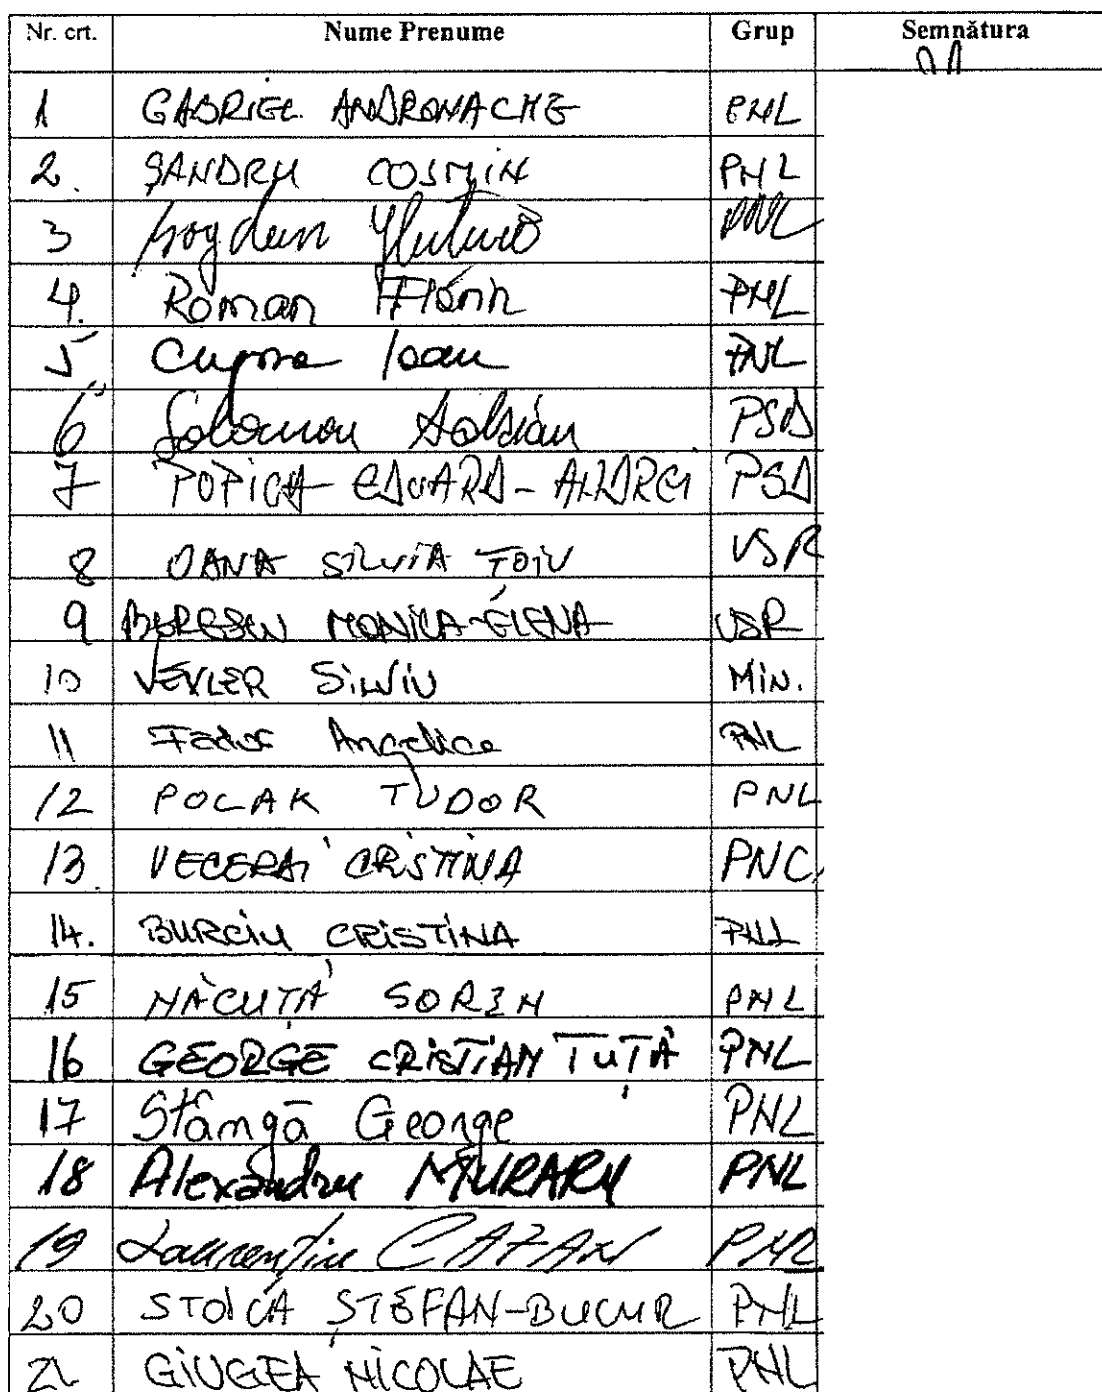 Nr. crt. Nume Prenume Grup Semnătura
1 GABRIEL ANDRONACHE PNL
2. ȘANDRU COSMIN PNL
3 Bogdan Huțucă PNL
4. Roman Florin PNL
5 Cupșa Ioan PNL
6 Solomon Adrian PSD
7 POPICA EDUARD-ANDREI PSD
8 OANA SILVIA ȚOIU USR
9 BERESCU MONICA-ELENA USR
10 VEXLER SILVIU MIN.
11 Fador Angelica PNL
12 POLAK TUDOR PNL
13. VECERDI CRISTINA PNL
14. BURCIU CRISTINA PNL
15 NĂCUȚĂ SORIN PNL
16 GEORGE CRISTIAN TUȚĂ PNL
17 Stângă George PNL
18 Alexandru MURARU PNL
19 Laurențiu CAZAN PNL
20 STOICA ȘTEFAN-BUCUR PNL
21 GIUGEA NICOLAE PNL